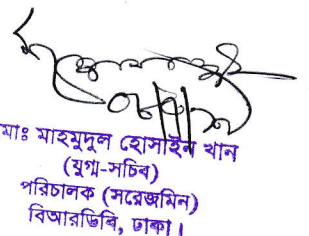 মাঃ মাহমুদুল হোসাইন খান
(যুগ্ম-সচিব)
পরিচালক (সরেজমিন)
বিআরডিবি, ঢাকা।